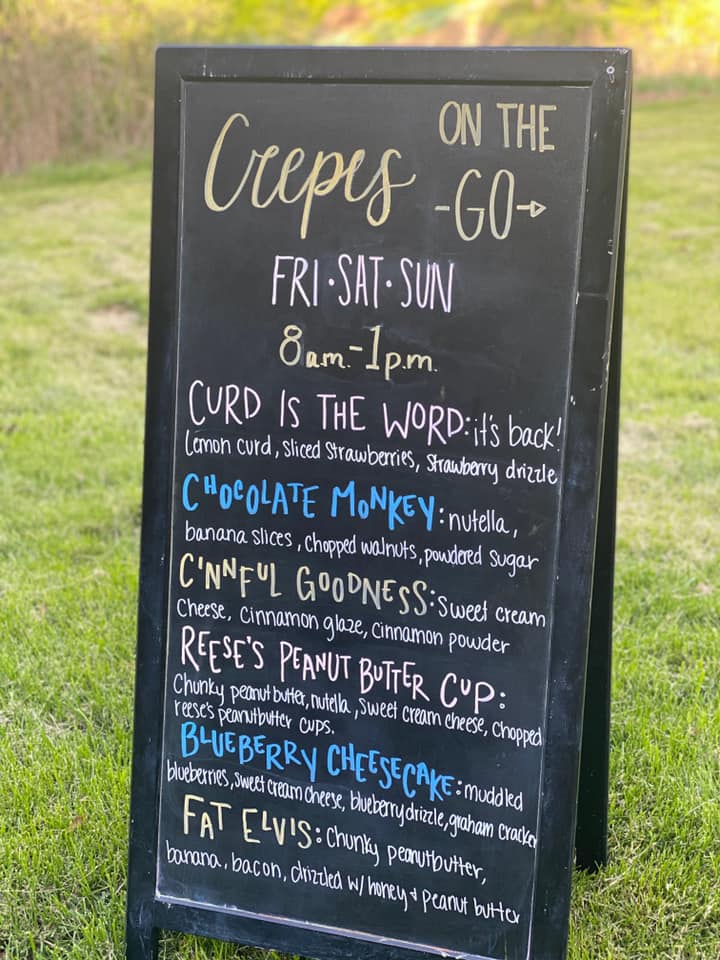 Crepes ON THE
-GO→
FRI·SAT·SUN
8am.-1p.m.
CURD IS THE WORD: it's back!
Lemon curd, sliced strawberries, strawberry drizzle
CHOCOLATE MONKEY: nutella,
banana slices, chopped walnuts, powdered sugar
C'NNFUL GOODNESS: sweet cream
cheese, cinnamon glaze, cinnamon powder
REESE'S PEANUT BUTTER CUP:
Chunky peanut butter, nutella, sweet cream cheese, chopped
reese's peanutbutter cups.
BLUEBERRY CHEESECAKE: muddled
blueberries, sweet cream cheese, blueberry drizzle, graham cracker
FAT ELVIS: chunky peanutbutter,
banana, bacon, drizzled w/ honey & peanut butter